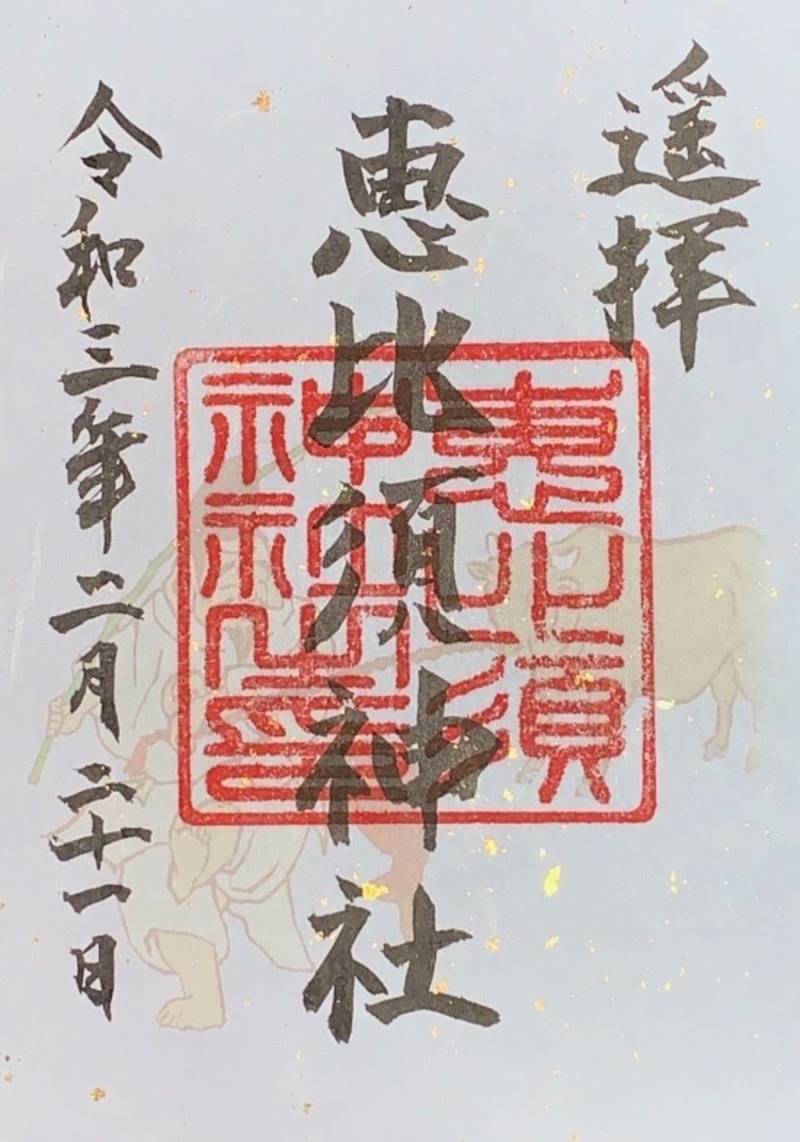 遥拝
恵比須神社
恵比須
神社
神社之印
令和三年二月二十一日